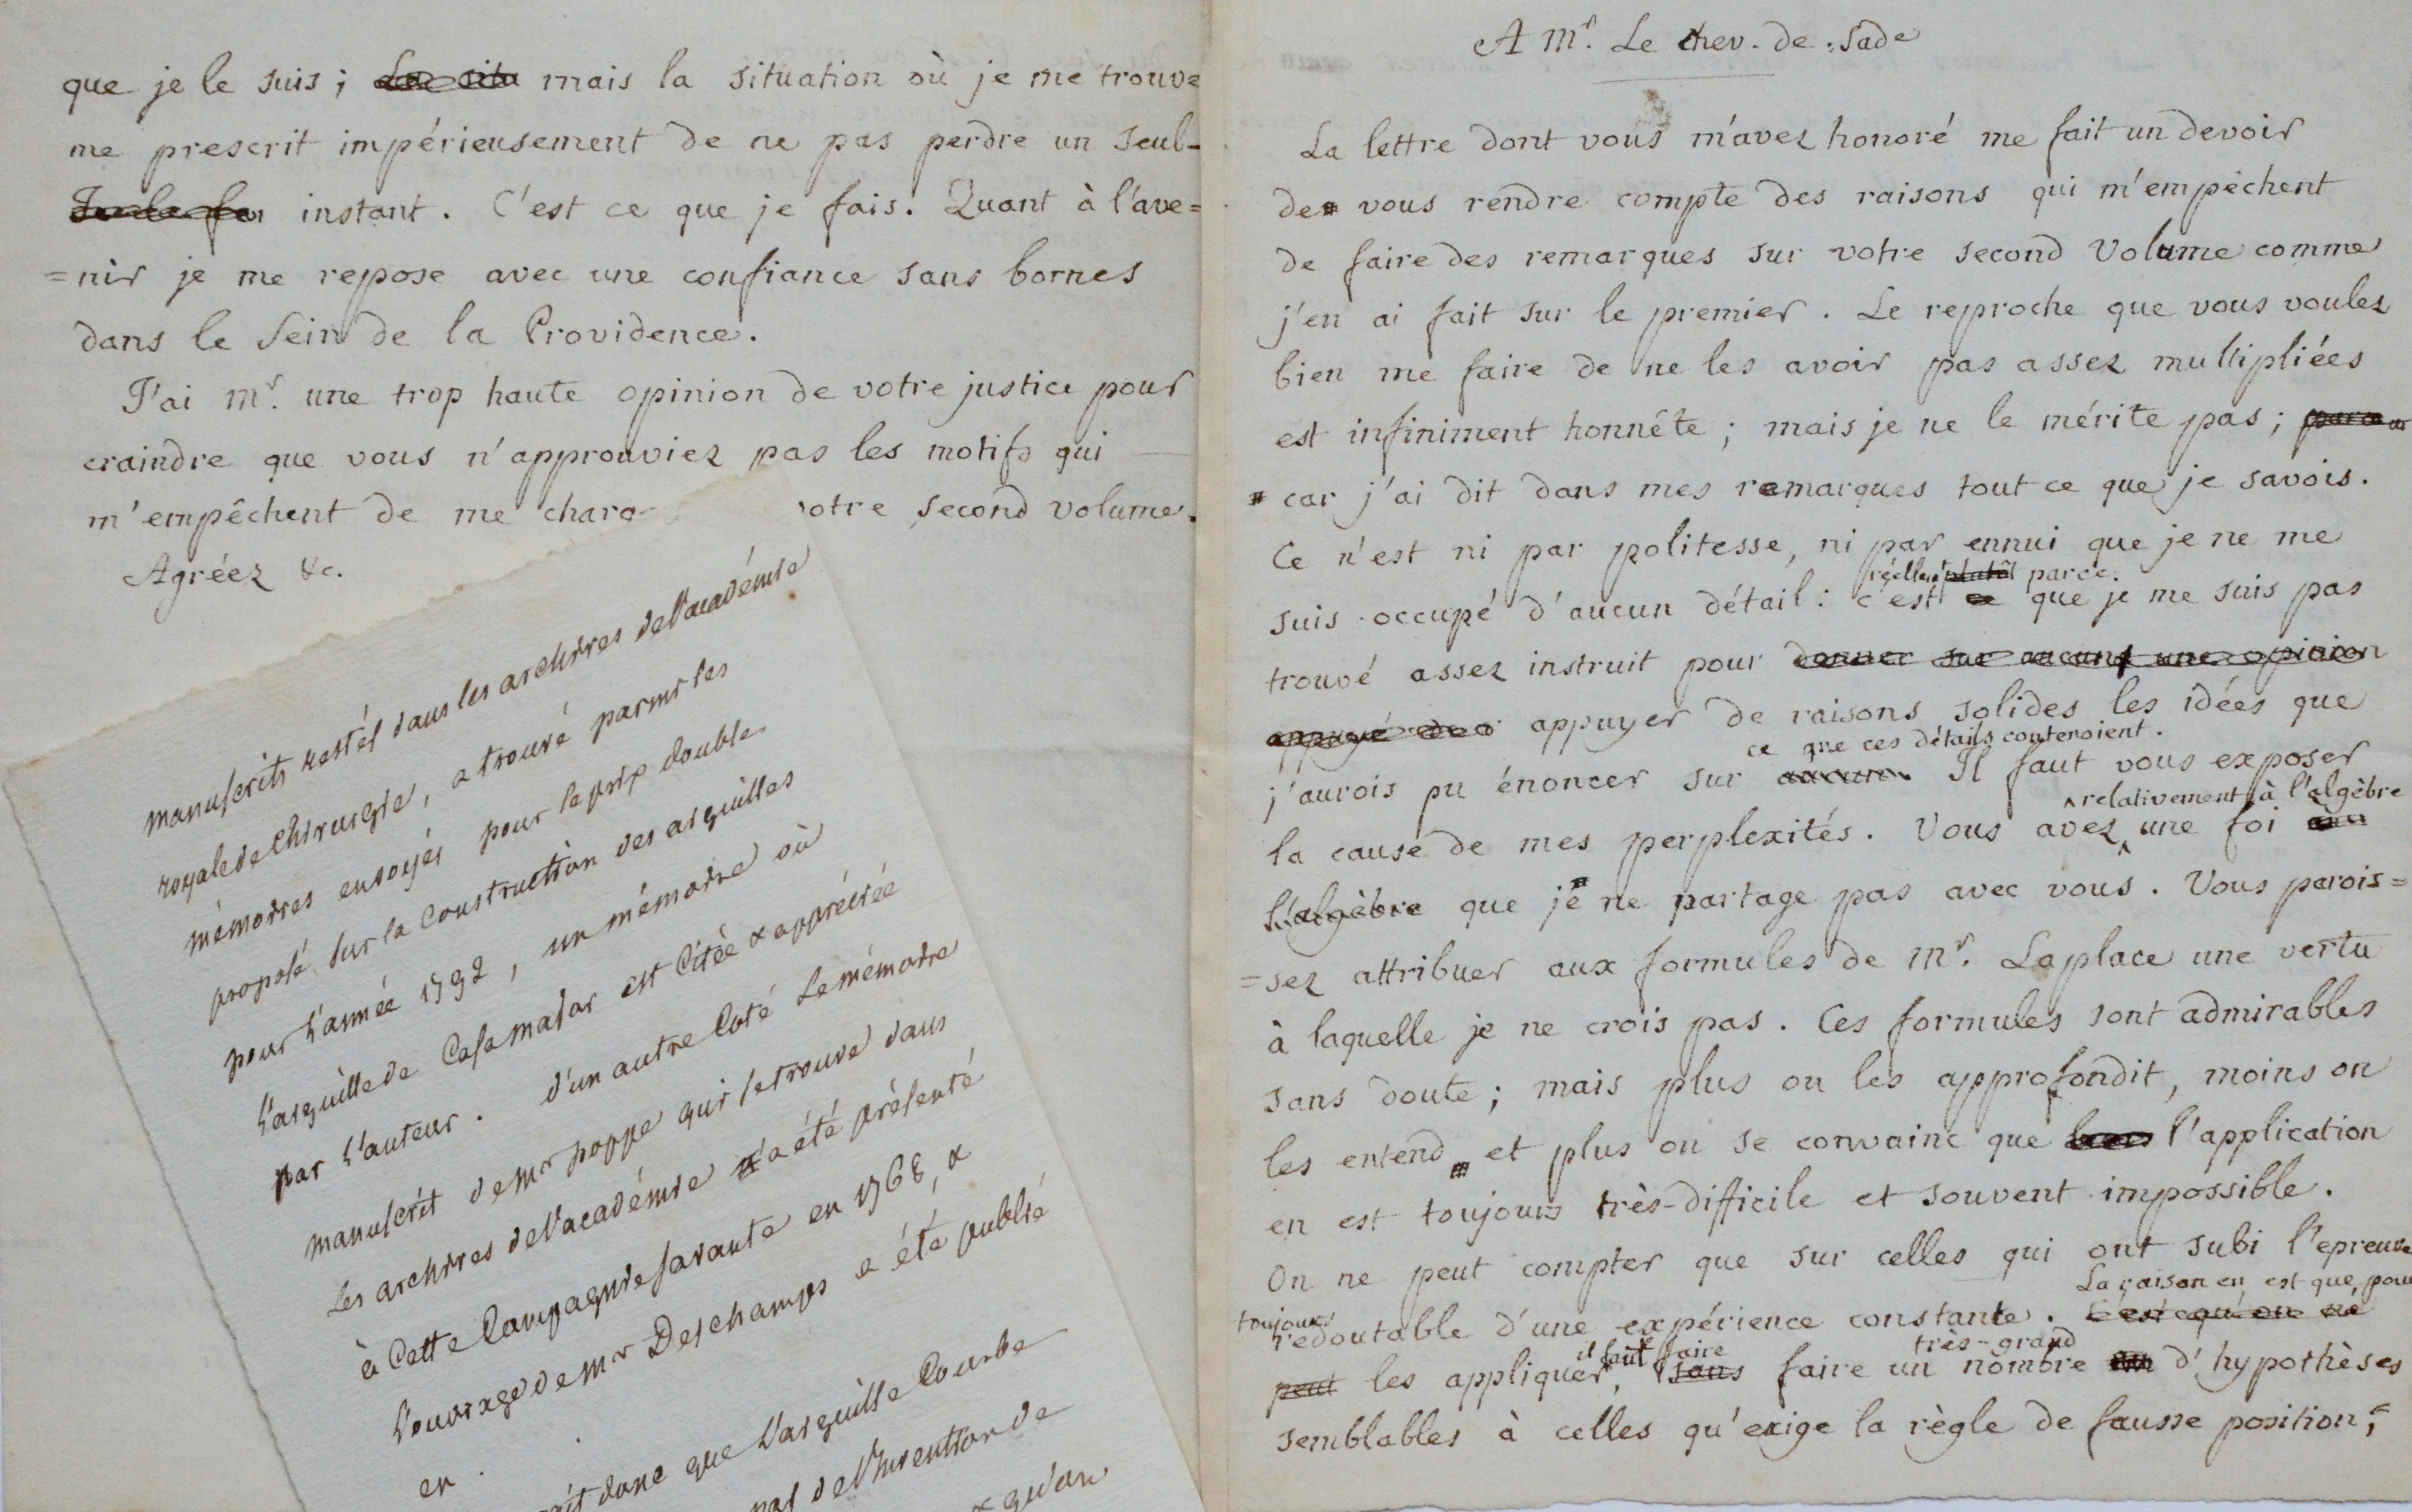 que je le suis ; mais la situation où je me trouve
me prescrit impérieusement de ne pas perdre un seul-
instant. C'est ce que je fais. Quant à l'ave=
=nir je me repose avec une confiance sans bornes
dans le sein de la Providence.
J'ai mr. une trop haute opinion de votre justice pour
craindre que vous n'approuviez pas les motifs qui
m'empêchent de me charg votre second volume.
Agréez &c.
manuscrits restés dans les archives de l'académie
royale de Chirurgie, a trouvé parmi les
mémoires envoyés pour le prix double
proposé sur la Construction des aiguilles
pour l'année 1792, un mémoire où
l'aiguille de Casamajor est Citée & appréciée
par l'auteur. d'un autre Coté le mémoire
manuscrit de Mr poppe qui se trouve dans
les archives de l'académie a été présenté
à Cette Compagnie savante en 1768, &
l'ouvrage de Mr Deschamps a été publié
en .
ait donc que l'aiguille Courbe
pas de l'Invention de
& qu'on
A Mr. Le chev. de Sade
La lettre dont vous m'avez honoré me fait un devoir
de vous rendre compte des raisons qui m'empêchent
de faire des remarques sur votre second volume comme
j'en ai fait sur le premier. Le reproche que vous voulez
bien me faire de ne les avoir pas assez multipliées
est infiniment honnête ; mais je ne le mérite pas ;
car j'ai dit dans mes remarques tout ce que je savois.
Ce n'est ni par politesse, ni par ennui que je ne me
plutôt parce
suis occupé d'aucun détail : c'est ce que je me suis pas
trouvé assez instruit pour donner sur aucun une opinion
appuyé de appuyer de raisons solides les idées que
ce que ces détails contenoient.
j'aurois pu énoncer sur aucun. Il faut vous exposer
relativement à l'algèbre
la cause de mes perplexités. Vous avez une foi
l'algèbre que je ne partage pas avec vous. Vous parois=
=sez attribuer aux formules de Mr. Laplace une vertu
à laquelle je ne crois pas. Ces formules sont admirables
sans doute ; mais plus on les approfondit, moins on
les entend et plus on se convainc que l'application
en est toujours très-difficile et souvent impossible.
On ne peut compter que sur celles qui ont subi l'epreuve
La raison en est que, pour
toujours
redoutable d'une expérience constante. C'est qu'on ne
il faut faire très-grand
peut les appliquer, sans faire un nombre d'hypothèses
semblables à celles qu'exige la règle de fausse position ;